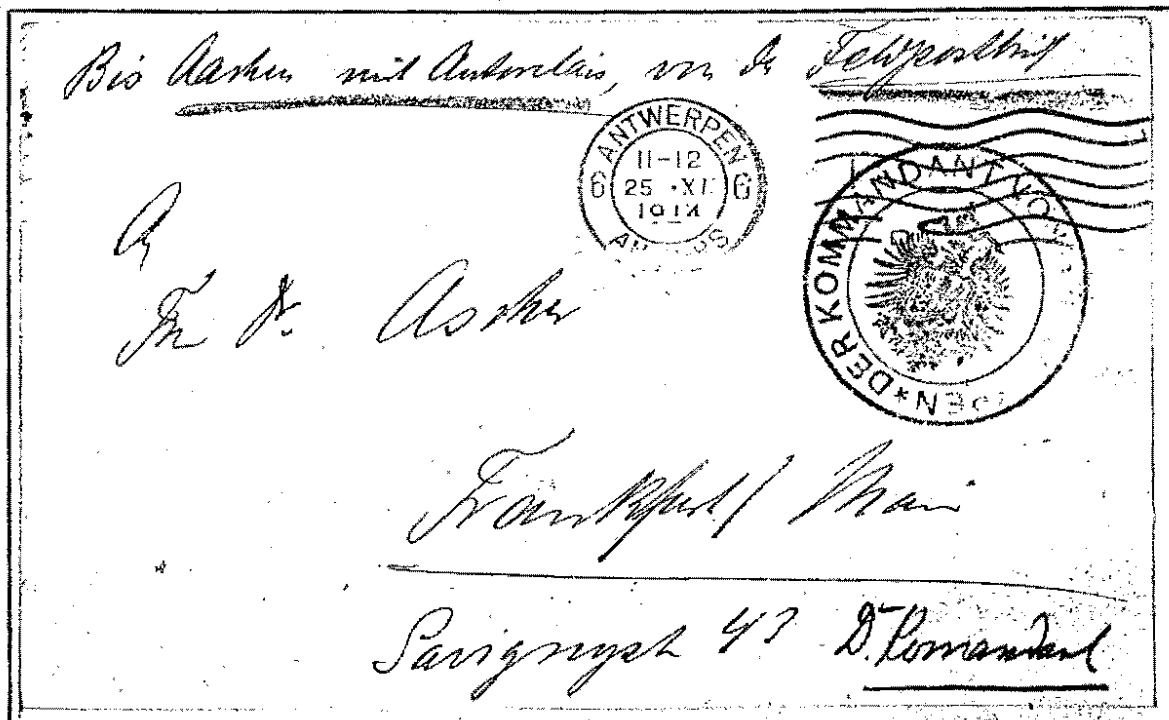 Bis Aachen mit Autorelais, von da Feldpostbrief
ANTWERPEN
11-12
6 25 XI 6
1914
DER KOMMANDANT VO
PEN *
An
Dr. Ascher
Frankfurt / Main
Savignystr 43
D. Komandant